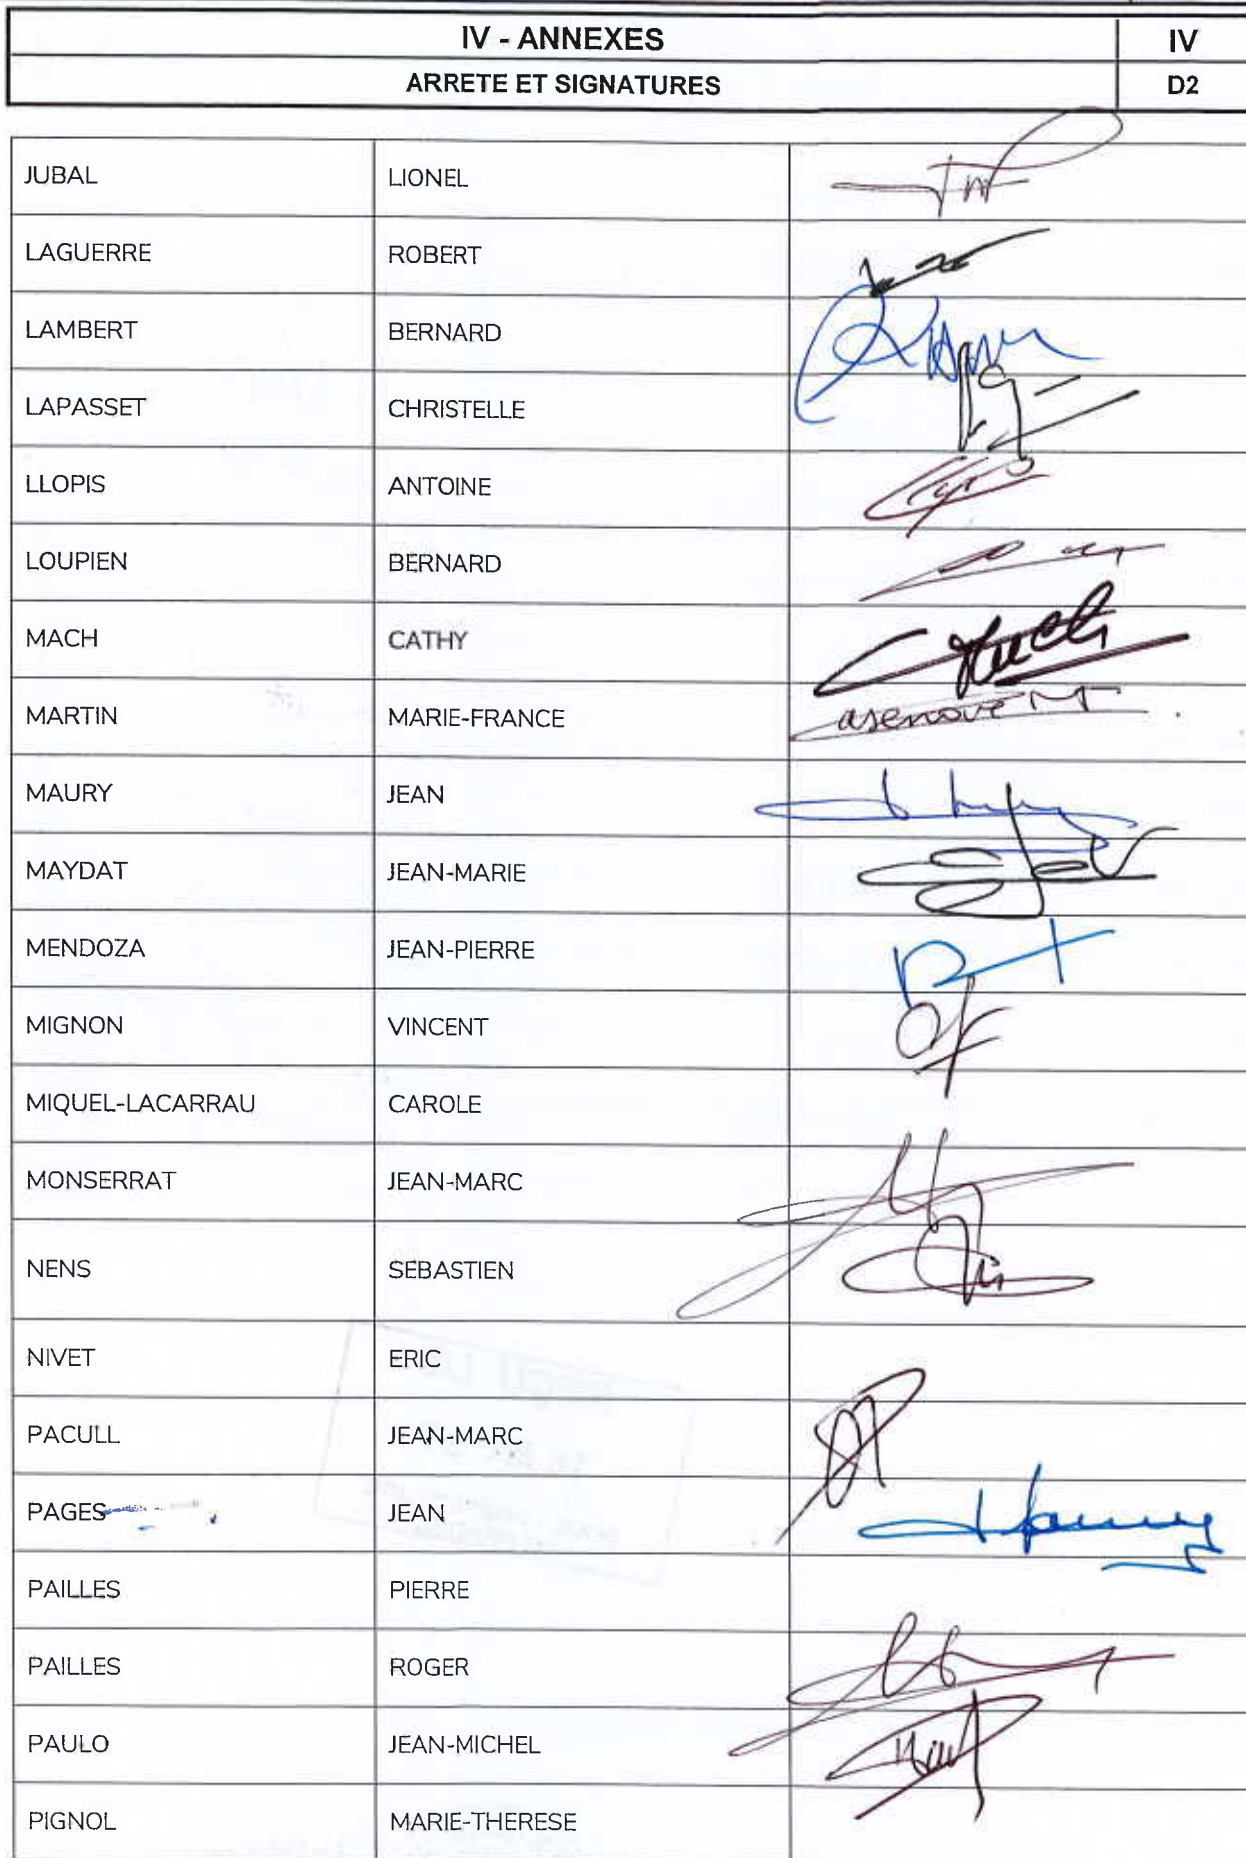 IV - ANNEXES IV
ARRETE ET SIGNATURES D2
JUBAL LIONEL
LAGUERRE ROBERT
LAMBERT BERNARD
LAPASSET CHRISTELLE
LLOPIS ANTOINE
LOUPIEN BERNARD
MACH CATHY
MARTIN MARIE-FRANCE
MAURY JEAN
MAYDAT JEAN-MARIE
MENDOZA JEAN-PIERRE
MIGNON VINCENT
MIQUEL-LACARRAU CAROLE
MONSERRAT JEAN-MARC
NENS SEBASTIEN
NIVET ERIC
PACULL JEAN-MARC
PAGES JEAN
PAILLES PIERRE
PAILLES ROGER
PAULO JEAN-MICHEL
PIGNOL MARIE-THERESE